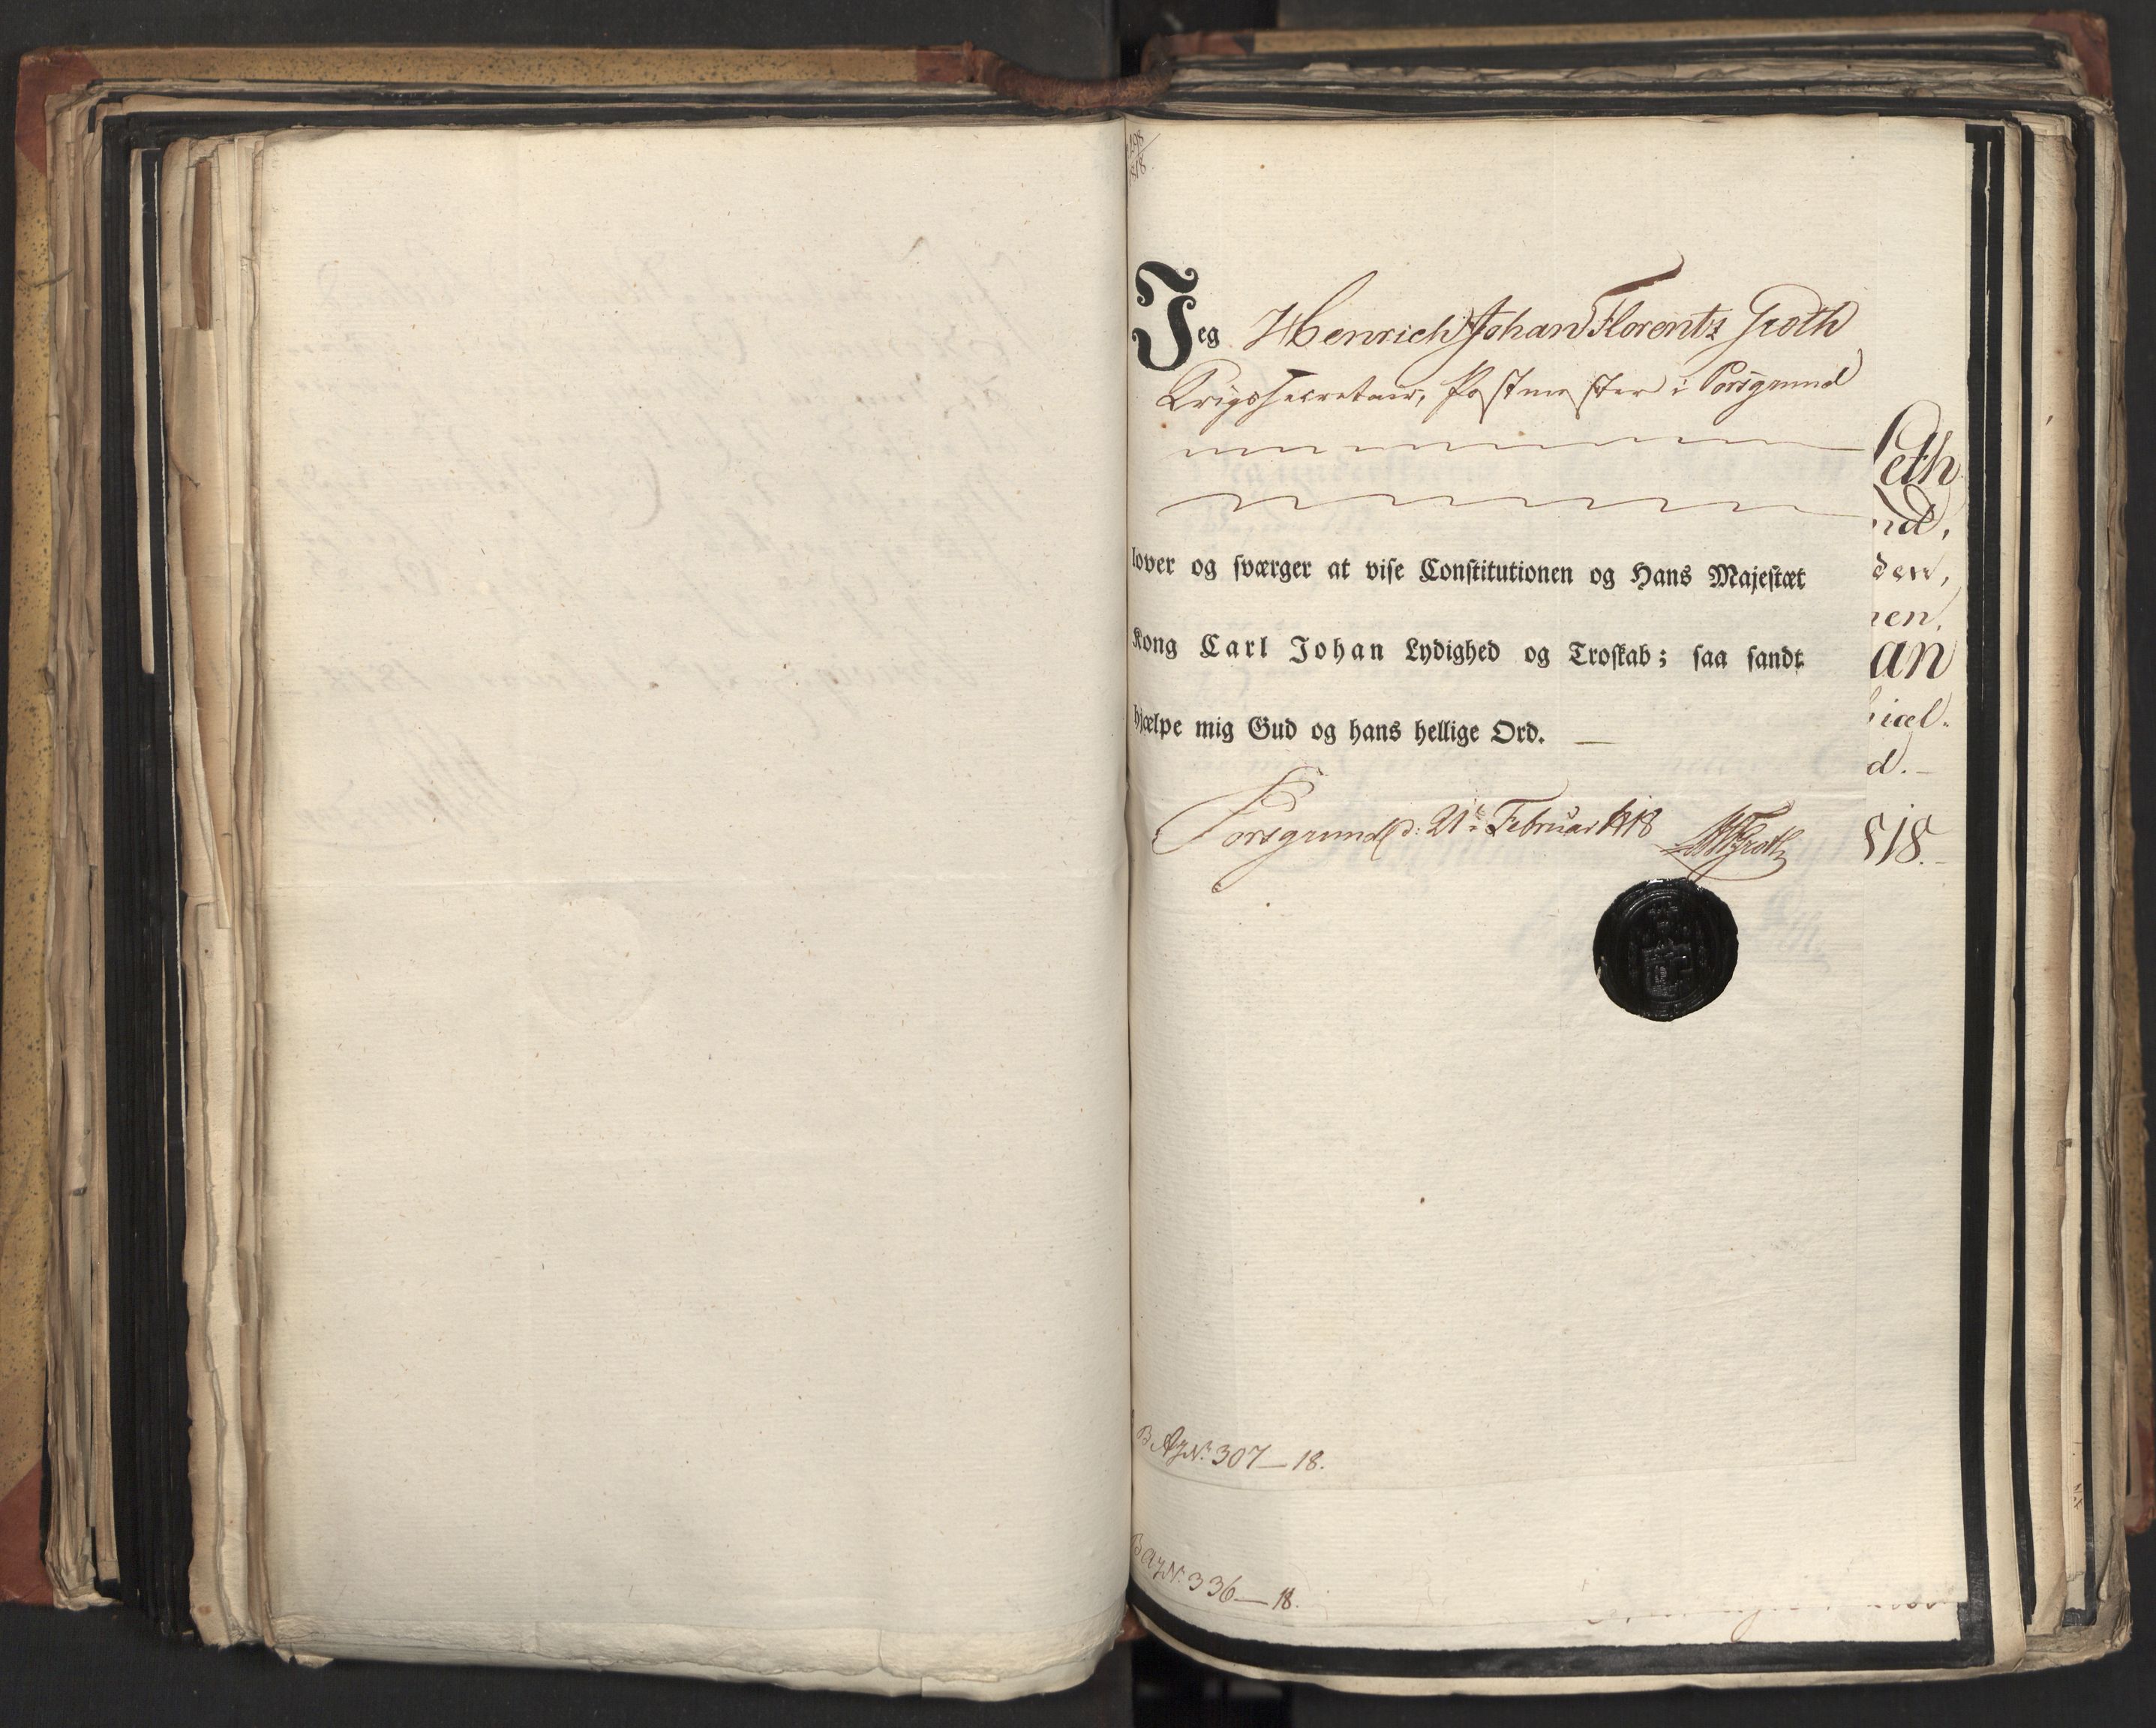 198/1818.
Jeg Henrich Johan Florentz Groth
Krigssecretair, Postmester i Porsgrund
lover og sværger at vise Constitutionen og Hans Majestæt
Kong Carl Johan Lydighed og Troskab; saa sandt
hjælpe mig Gud og hans hellige Ord. —
Porsgrund d: 21de Februar 1818 HJFGroth
eth
nd,
den,
nen,
an
hiæl-
d. —
818. —
No. 307 — 18.
No. 336 — 18.